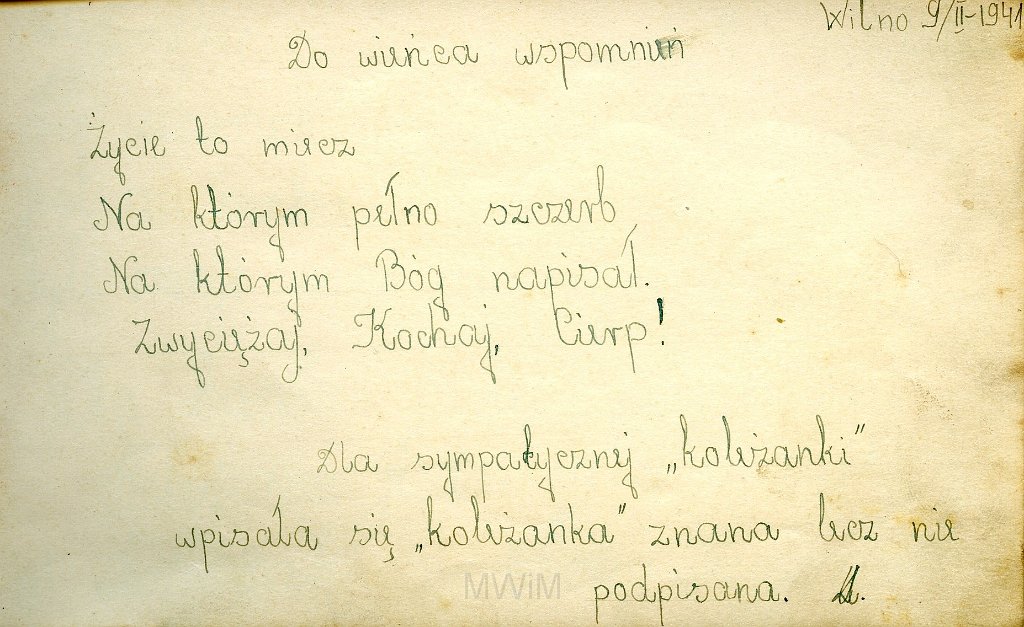 Wilno 9/II-1941
Do wieńca wspomnień
Życie to miecz
Na którym pełno szczerb
Na którym Bóg napisał.
Zwyciężaj, Kochaj, Cierp!
Dla sympatycznej „koleżanki”
wpisała się „koleżanka” znana lecz nie
podpisana.
MWiM